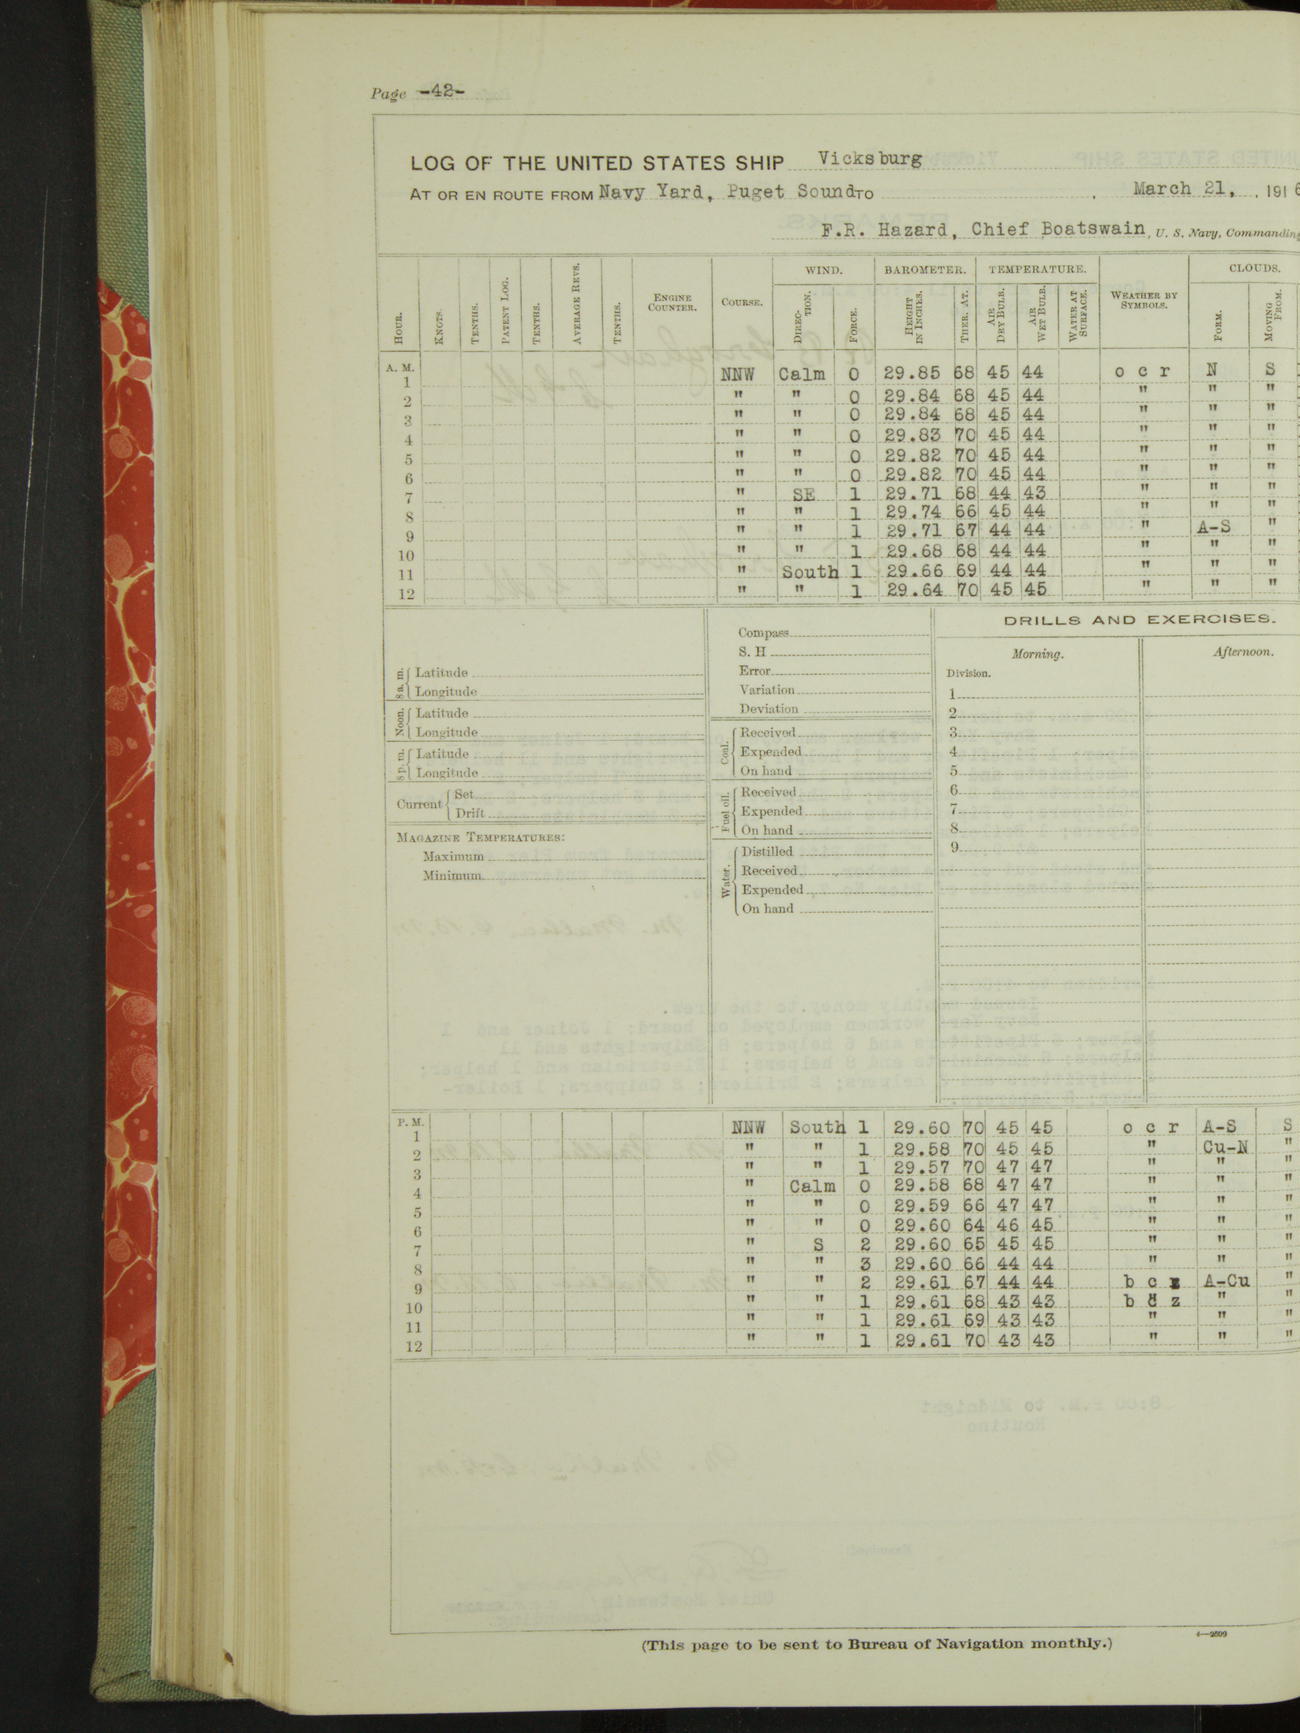 Page -42-
LOG OF THE UNITED STATES SHIP Vicksburg
AT OR EN ROUTE FROM Navy Yard, Puget Sound TO , March 21, , 1916
F.R. Hazard, Chief Boatswain, U. S. Navy, Commanding
HOUR. KNOTS. TENTHS. PATENT LOG. TENTHS. AVERAGE REVS. TENTHS. ENGINE COUNTER. COURSE. WIND. DIREC-TION. FORCE. BAROMETER. HEIGHT IN INCHES. THER. AT. TEMPERATURE. AIR DRY BULB. AIR WET BULB. WATER AT SURFACE. WEATHER BY SYMBOLS. CLOUDS. FORM. MOVING FROM.
A. M.
1 NNW Calm 0 29.85 68 45 44 o c r N S
2 " " 0 29.84 68 45 44 " " "
3 " " 0 29.84 68 45 44 " " "
4 " " 0 29.83 70 45 44 " " "
5 " " 0 29.82 70 45 44 " " "
6 " " 0 29.82 70 45 44 " " "
7 " SE 1 29.71 68 44 43 " " "
8 " " 1 29.74 66 45 44 " " "
9 " " 1 29.71 67 44 44 " A-S "
10 " " 1 29.68 68 44 44 " " "
11 " South 1 29.66 69 44 44 " " "
12 " " 1 29.64 70 45 45 " " "
8 a. m. Latitude
Longitude
Noon. Latitude
Longitude
8 p. m. Latitude
Longitude
Current Set
Drift
MAGAZINE TEMPERATURES:
Maximum
Minimum
Compass
S. H
Error
Variation
Deviation
Coal. Received
Expended
On hand
Fuel oil. Received
Expended
On hand
Water. Distilled
Received
Expended
On hand
DRILLS AND EXERCISES.
Morning. Afternoon.
Division.
1
2
3
4
5
6
7
8
9
P. M.
1 NNW South 1 29.60 70 45 45 o c r A-S S
2 " " 1 29.58 70 45 45 " Cu-N "
3 " " 1 29.57 70 47 47 " " "
4 " Calm 0 29.58 68 47 47 " " "
5 " " 0 29.59 66 47 47 " " "
6 " " 0 29.60 64 46 45 " " "
7 " S 2 29.60 65 45 45 " " "
8 " " 3 29.60 66 44 44 " " "
9 " " 2 29.61 67 44 44 b c A-Cu "
10 " " 1 29.61 68 43 43 b z " "
11 " " 1 29.61 69 43 43 " " "
12 " " 1 29.61 70 43 43 " " "
(This page to be sent to Bureau of Navigation monthly.)
4—2809